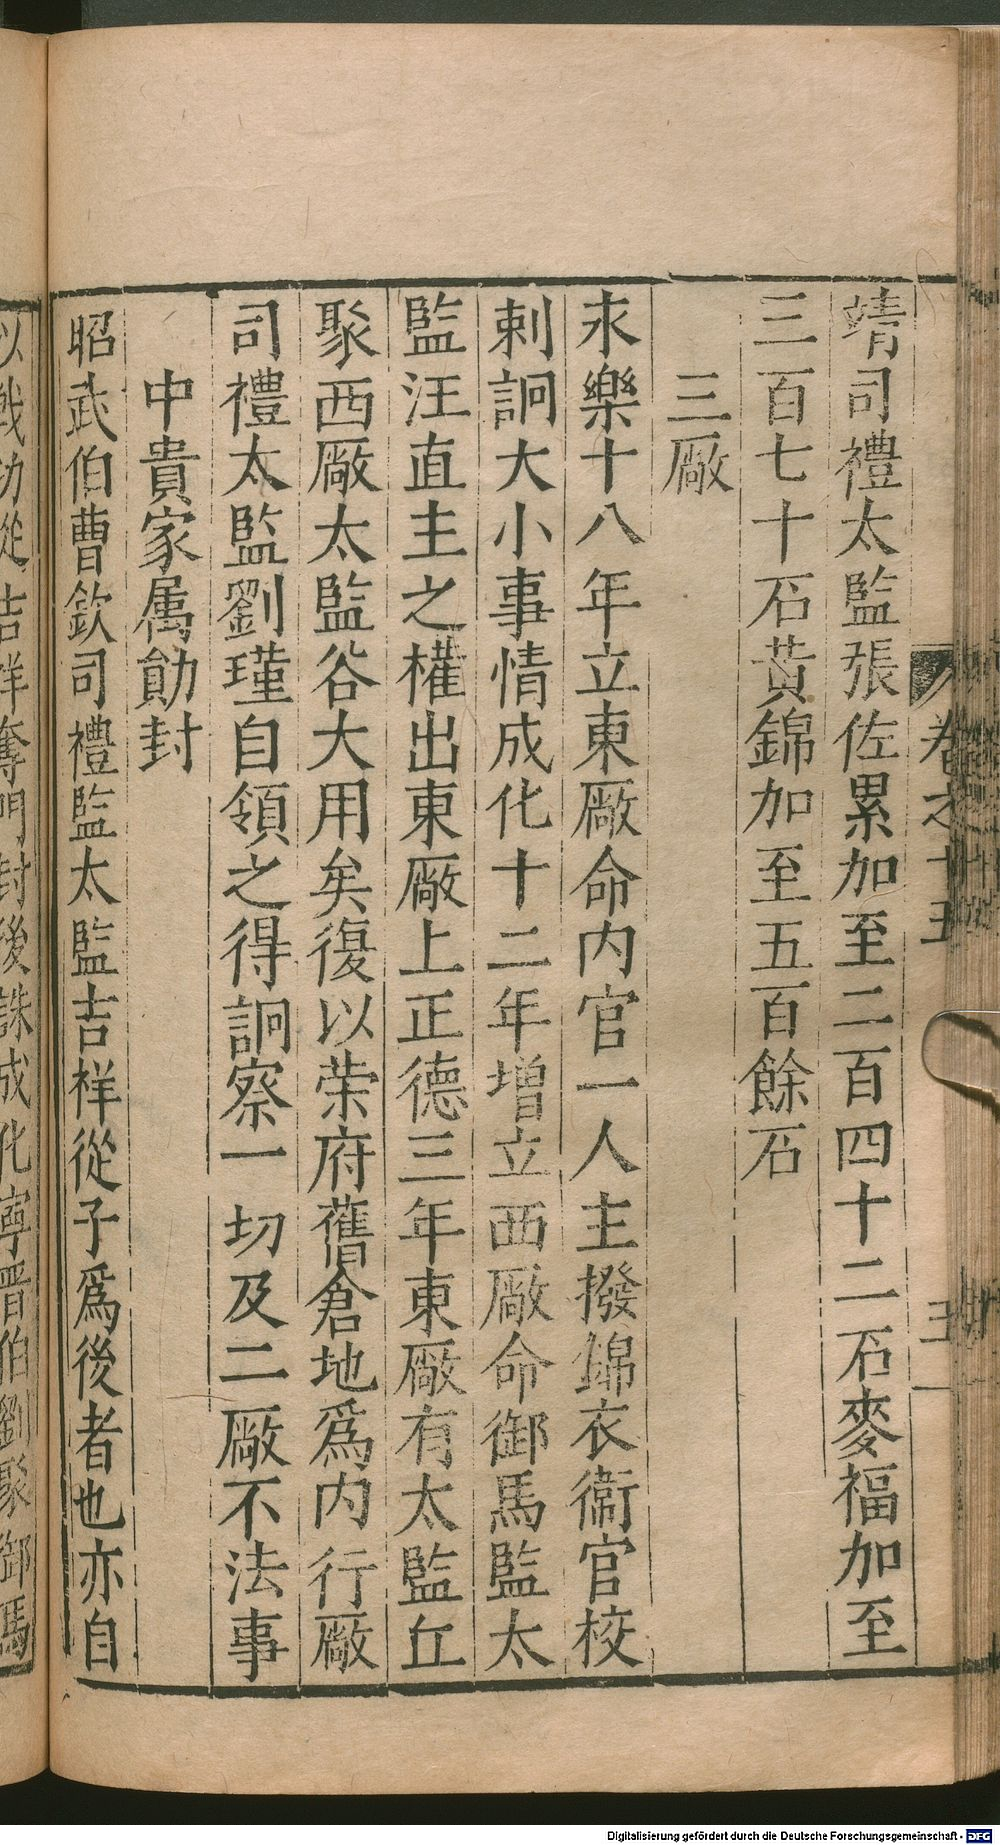 靖司禮太監張佐累加至二百四十二石麥福加至
三百七十石黃錦加至五百餘石
三厰
永樂十八年立東厰命内官一人主撥錦衣衞官校
刺詗大小事情成化十二年增立西厰命御馬監太
監汪直主之權出東厰上正德三年東厰有太監丘
聚西厰太監谷大用矣復以荣府舊倉地爲内行厰
司禮太監劉瑾自領之得詗察一切及二厰不法事
中貴家属勛封
昭武伯曹欽司禮監太監吉祥從子爲後者也亦自
以戰功從吉祥奪門封後誅成化寧晋伯劉聚御馬
卷之十五
五
Digitalisierung gefördert durch die Deutsche Forschungsgemeinschaft - DFG